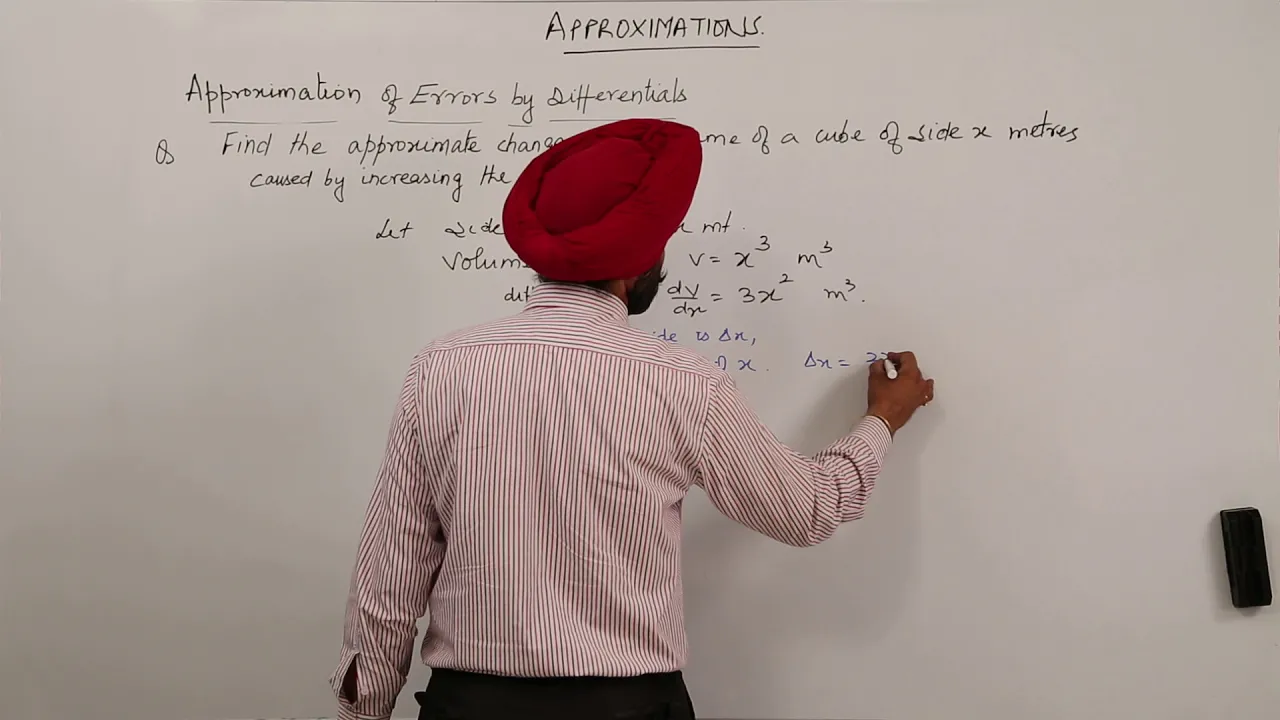 APPROXIMATIONS.
Approximation of Errors by Differentials
Q Find the approximate change of a cube of side x metres
caused by increasing the
Let side mt.
V = x³ m³
dv/dx = 3x² m³.
is Δx,
x. Δx =